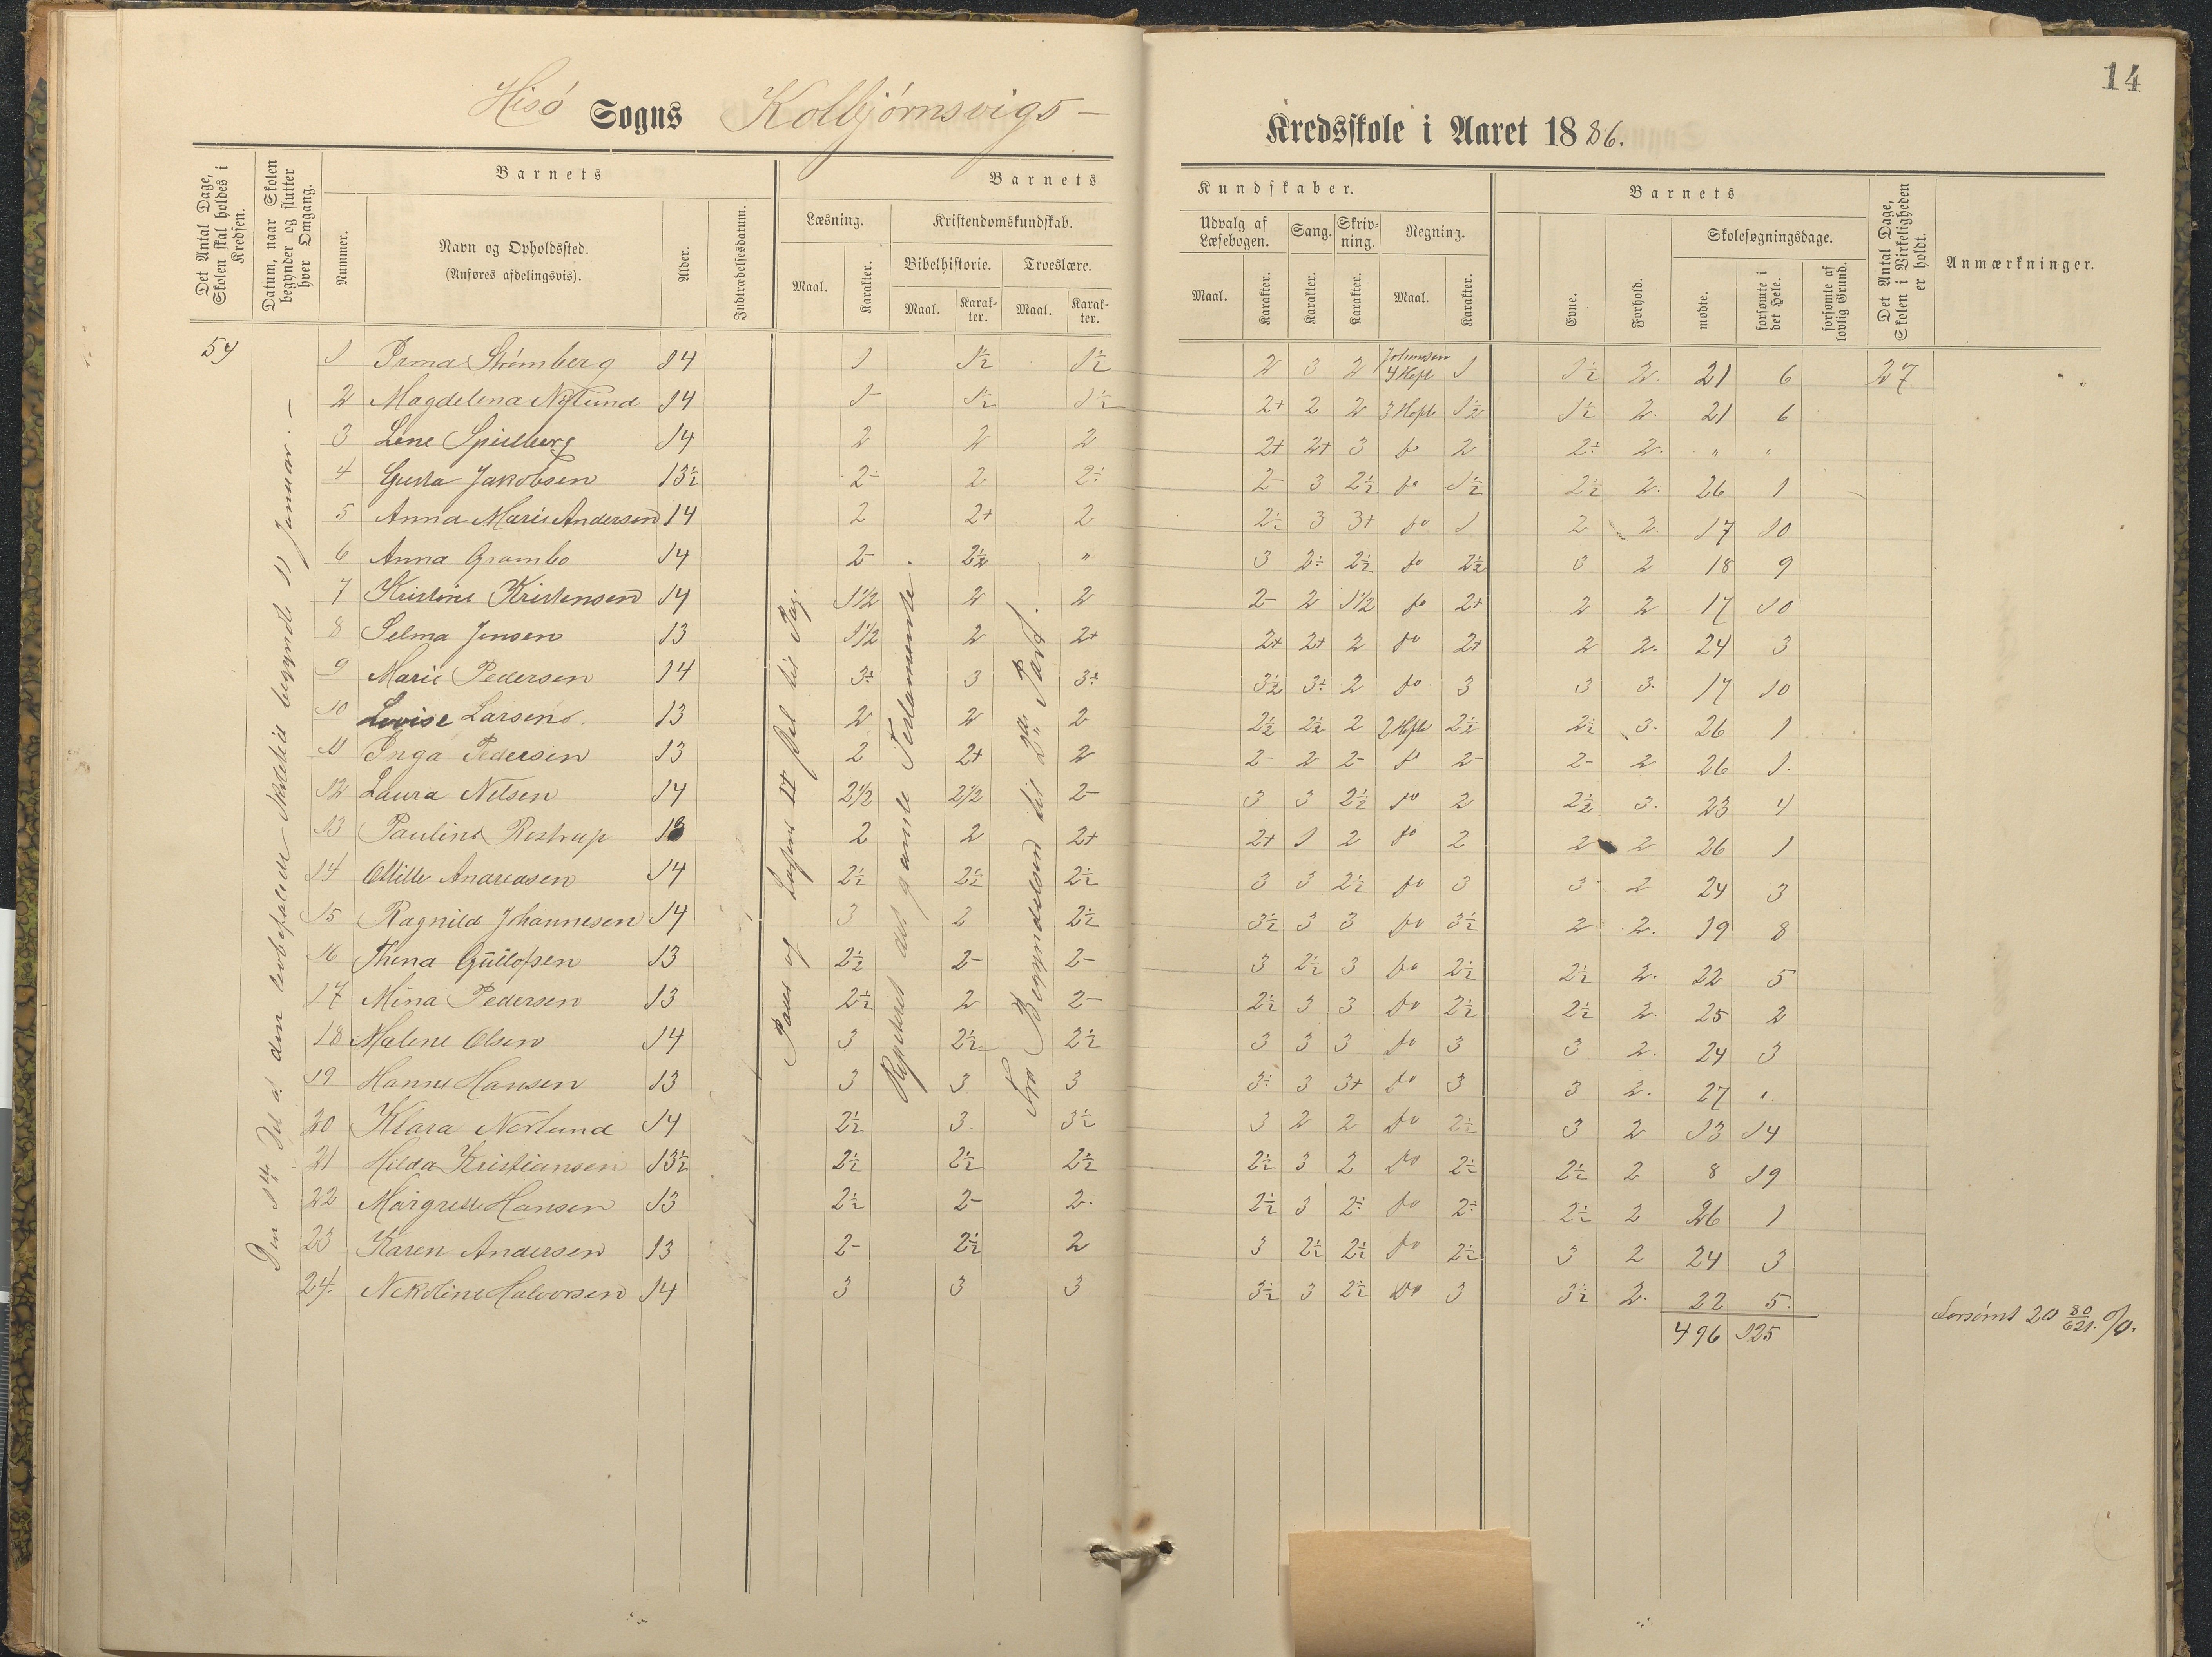 14
Hisö Sogns Kolbjørnsvigs – Kredsskole i Aaret 1886.
Det Antal Dage, Skolen skal holdes i Kredsen.
Datum, naar Skolen begynder og slutter hver Omgang.
Barnets
Nummer.
Navn og Opholdssted.
(Anføres afdelingsvis).
Alder.
Indtrædelsesdatum.
Barnets Kundskaber.
Læsning.
Maal.
Karakter.
Kristendomskundskab.
Bibelhistorie.
Maal.
Karakter.
Troeslære.
Maal.
Karakter.
Udvalg af Læsebogen.
Maal.
Karakter.
Sang.
Karakter.
Skrivning.
Karakter.
Regning.
Maal.
Karakter.
Barnets
Evne.
Forhold.
Skolesøgningsdage.
mødte.
forsømte i det Hele.
forsømte af lovlig Grund.
Det Antal Dage, Skolen i Virkeligheden er holdt.
Anmærkninger.
54
begyndte 11 Januar. –
Repeteret det gamle Testamente.
Fra Begyndelsen til 3die Part.
1 Irma Strömberg 14 1 1½ 1½ 2 3 2 Johansen 4 Heft 1 1½ 2. 21 6 27
2 Magdelena Nylund 14 1- 1½ 1½ 2+ 2 2 3 Heft 1½ 1½ 2. 21 6
3 Lene Spilberg 14 2 2 2 2+ 2+ 3 do 2 2÷ 2. " "
4 Gusta Jakobsen 13½ 2- 2 2÷ 2- 3 2½ do 1½ 2½ 2. 26 1
5 Anna Marie Andersen 14 2 2+ 2 2½ 3 3+ do 1 2 2. 17 10
6 Anna Grambo 14 2- 2½ " 3 2÷ 2½ do 2½ 3 2 18 9
7 Kristine Kristensen 14 1½ 2 2 2- 2 1½ do 2+ 2 2 17 10
8 Selma Jensen 13 1½ 2 2+ 2+ 2+ 2 do 2+ 2 2. 24 3
9 Marie Pedersen 14 3÷ 3 3÷ 3½ 3÷ 2 do 3 3 3. 17 10
10 Lovise Larsen 13 2 2 2 2½ 2½ 2 2 Heft 2½ 2½ 3. 26 1
11 Inga Pedersen 13 2 2+ 2 2- 2 2- do 2- 2- 2 26 1.
12 Laura Nelsen 14 2½ 2½ 2- 3 3 2½ do 2 2½ 3. 23 4
13 Pauline Rostrup 13 2 2 2+ 2+ 1 2 do 2 2 2 26 1
14 Ottille Andreasen 14 2½ 2½ 2½ 3 3 2½ do 3 3 2 24 3
15 Ragnild Johannesen 14 3 2 2½ 3½ 3 3 do 3½ 2 2. 19 8
16 Thena Gullofsen 13 2½ 2- 2- 3 2½ 3 do 2½ 2½ 2. 22 5
17 Mina Pedersen 13 2½ 2 2- 2½ 3 3 do 2½ 2½ 2. 25 2
18 Malene Olsen 14 3 2½ 2½ 3 3 3 do 3 3 2. 24 3
19 Hanne Hansen 13 3 3 3 3÷ 3 3+ do 3 3 2. 27 "
20 Klara Norlund 14 2½ 3 3½ 3 2 2 do 2½ 3 2 13 14
21 Hilda Kristiansen 13½ 2½ 2½ 2½ 2½ 3 2 do 2½ 2½ 2 8 19
22 Margrette Hansen 13 2½ 2- 2. 2½ 3 2÷ do 2÷ 2½ 2 26 1
23 Karen Andersen 13 2- 2½ 2 3 2½ 2½ do 2½ 3 2 24 3
24. Nekoline Halvorsen 14 3 3 3 3½ 3 2½ do 3 3½ 2. 22 5.
496 125
Forsömt 20 80/621. %.